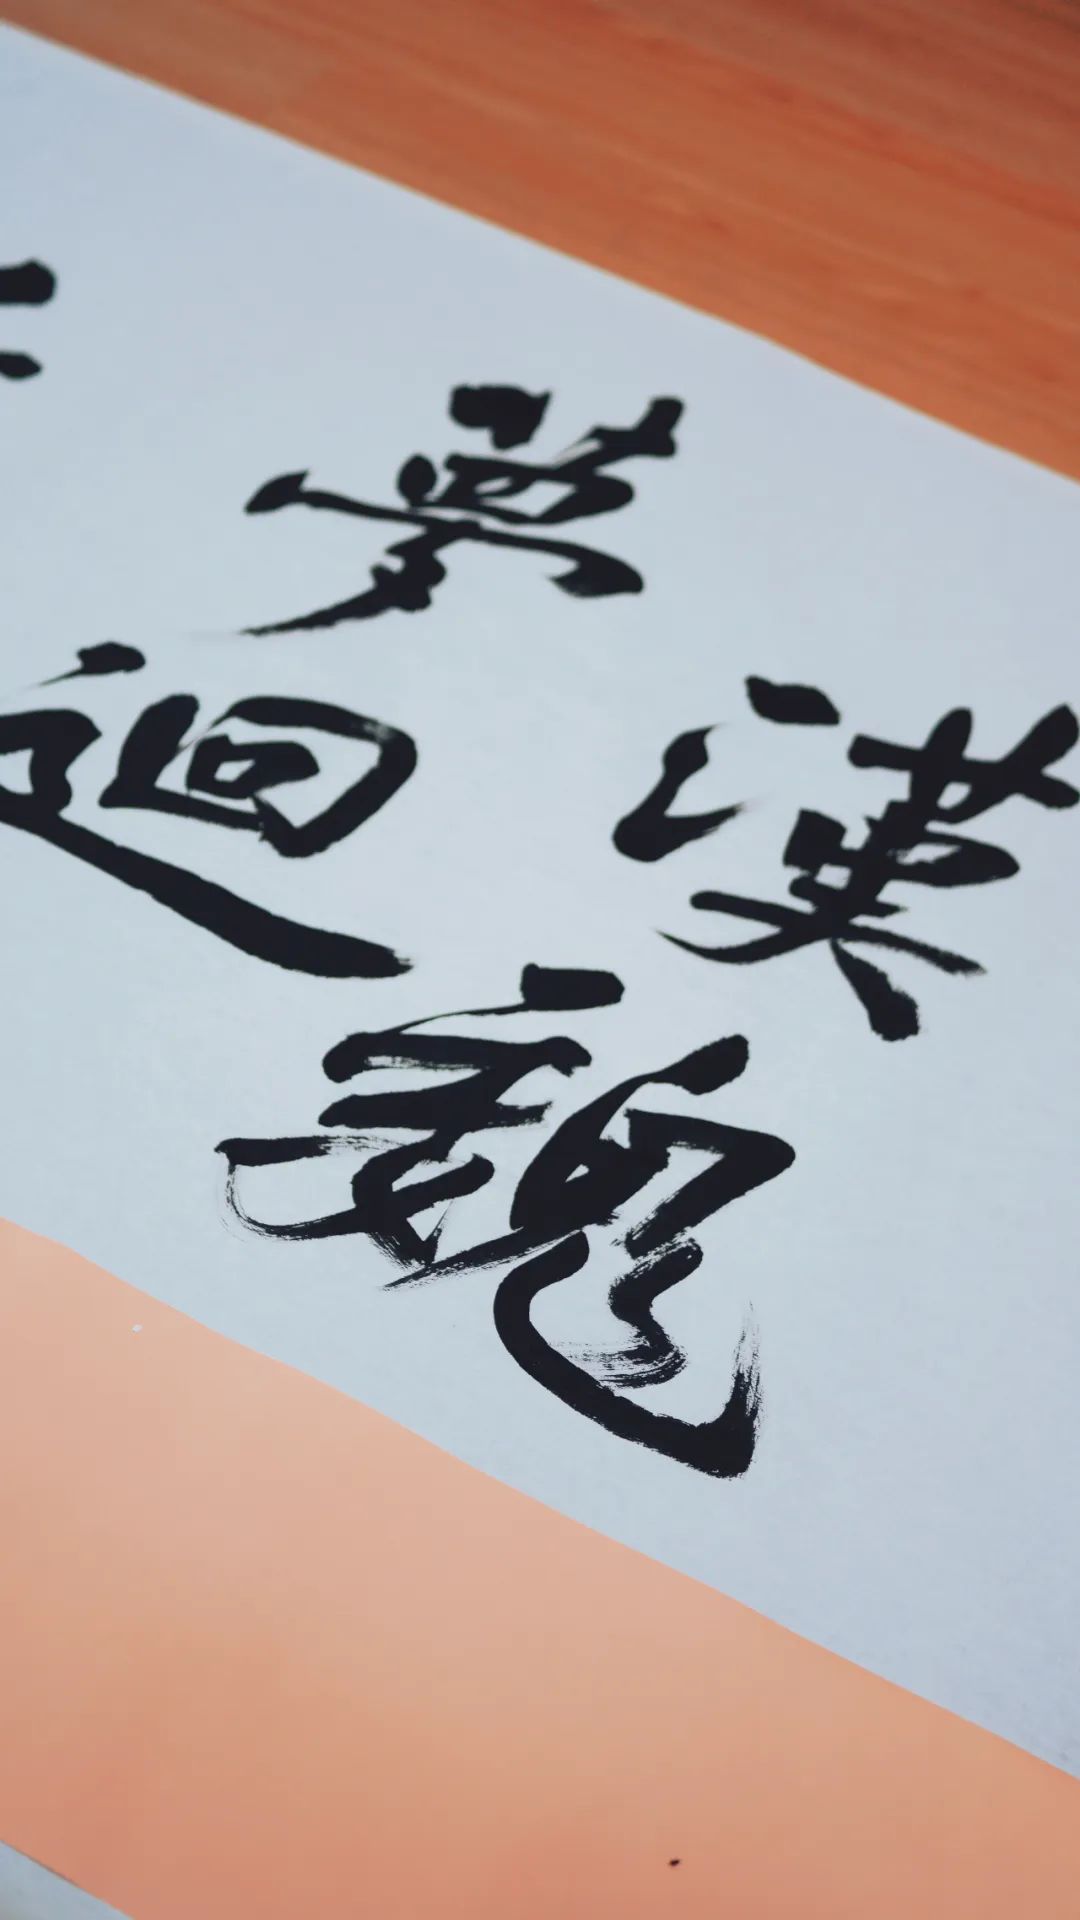 漢魏
夢迴